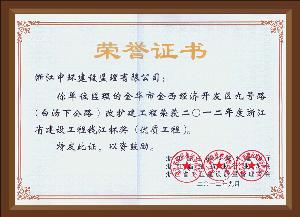 荣誉证书
浙江中环建设监理有限公司：
你单位监理的金华市金西经济开发区九号路
（白汤下公路）改扩建工程荣获二〇一二年度浙江
省建设工程钱江杯奖（优质工程）。
特发此证，以资鼓励。
二〇一三年九月